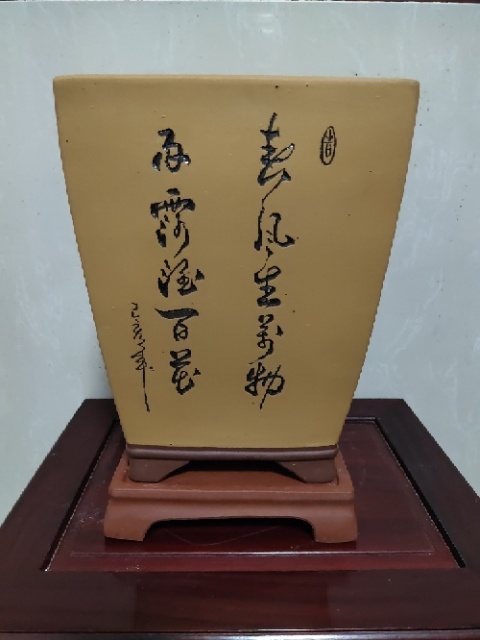 吉
春风生万物
雨露滋百花
己亥年